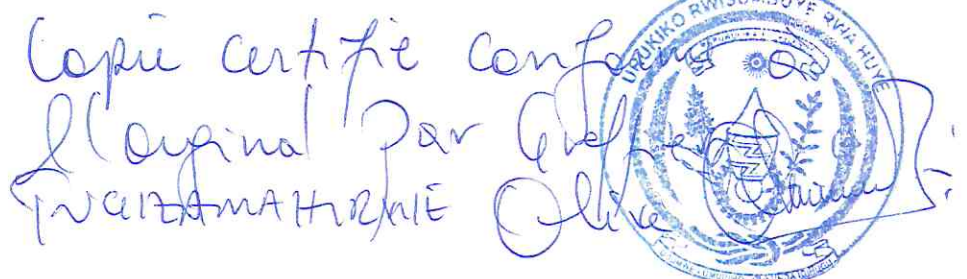 Copie certifié conforme a
l'original par Greffier
Olive
URUKIKO RWISUMBUYE RWA HUYE